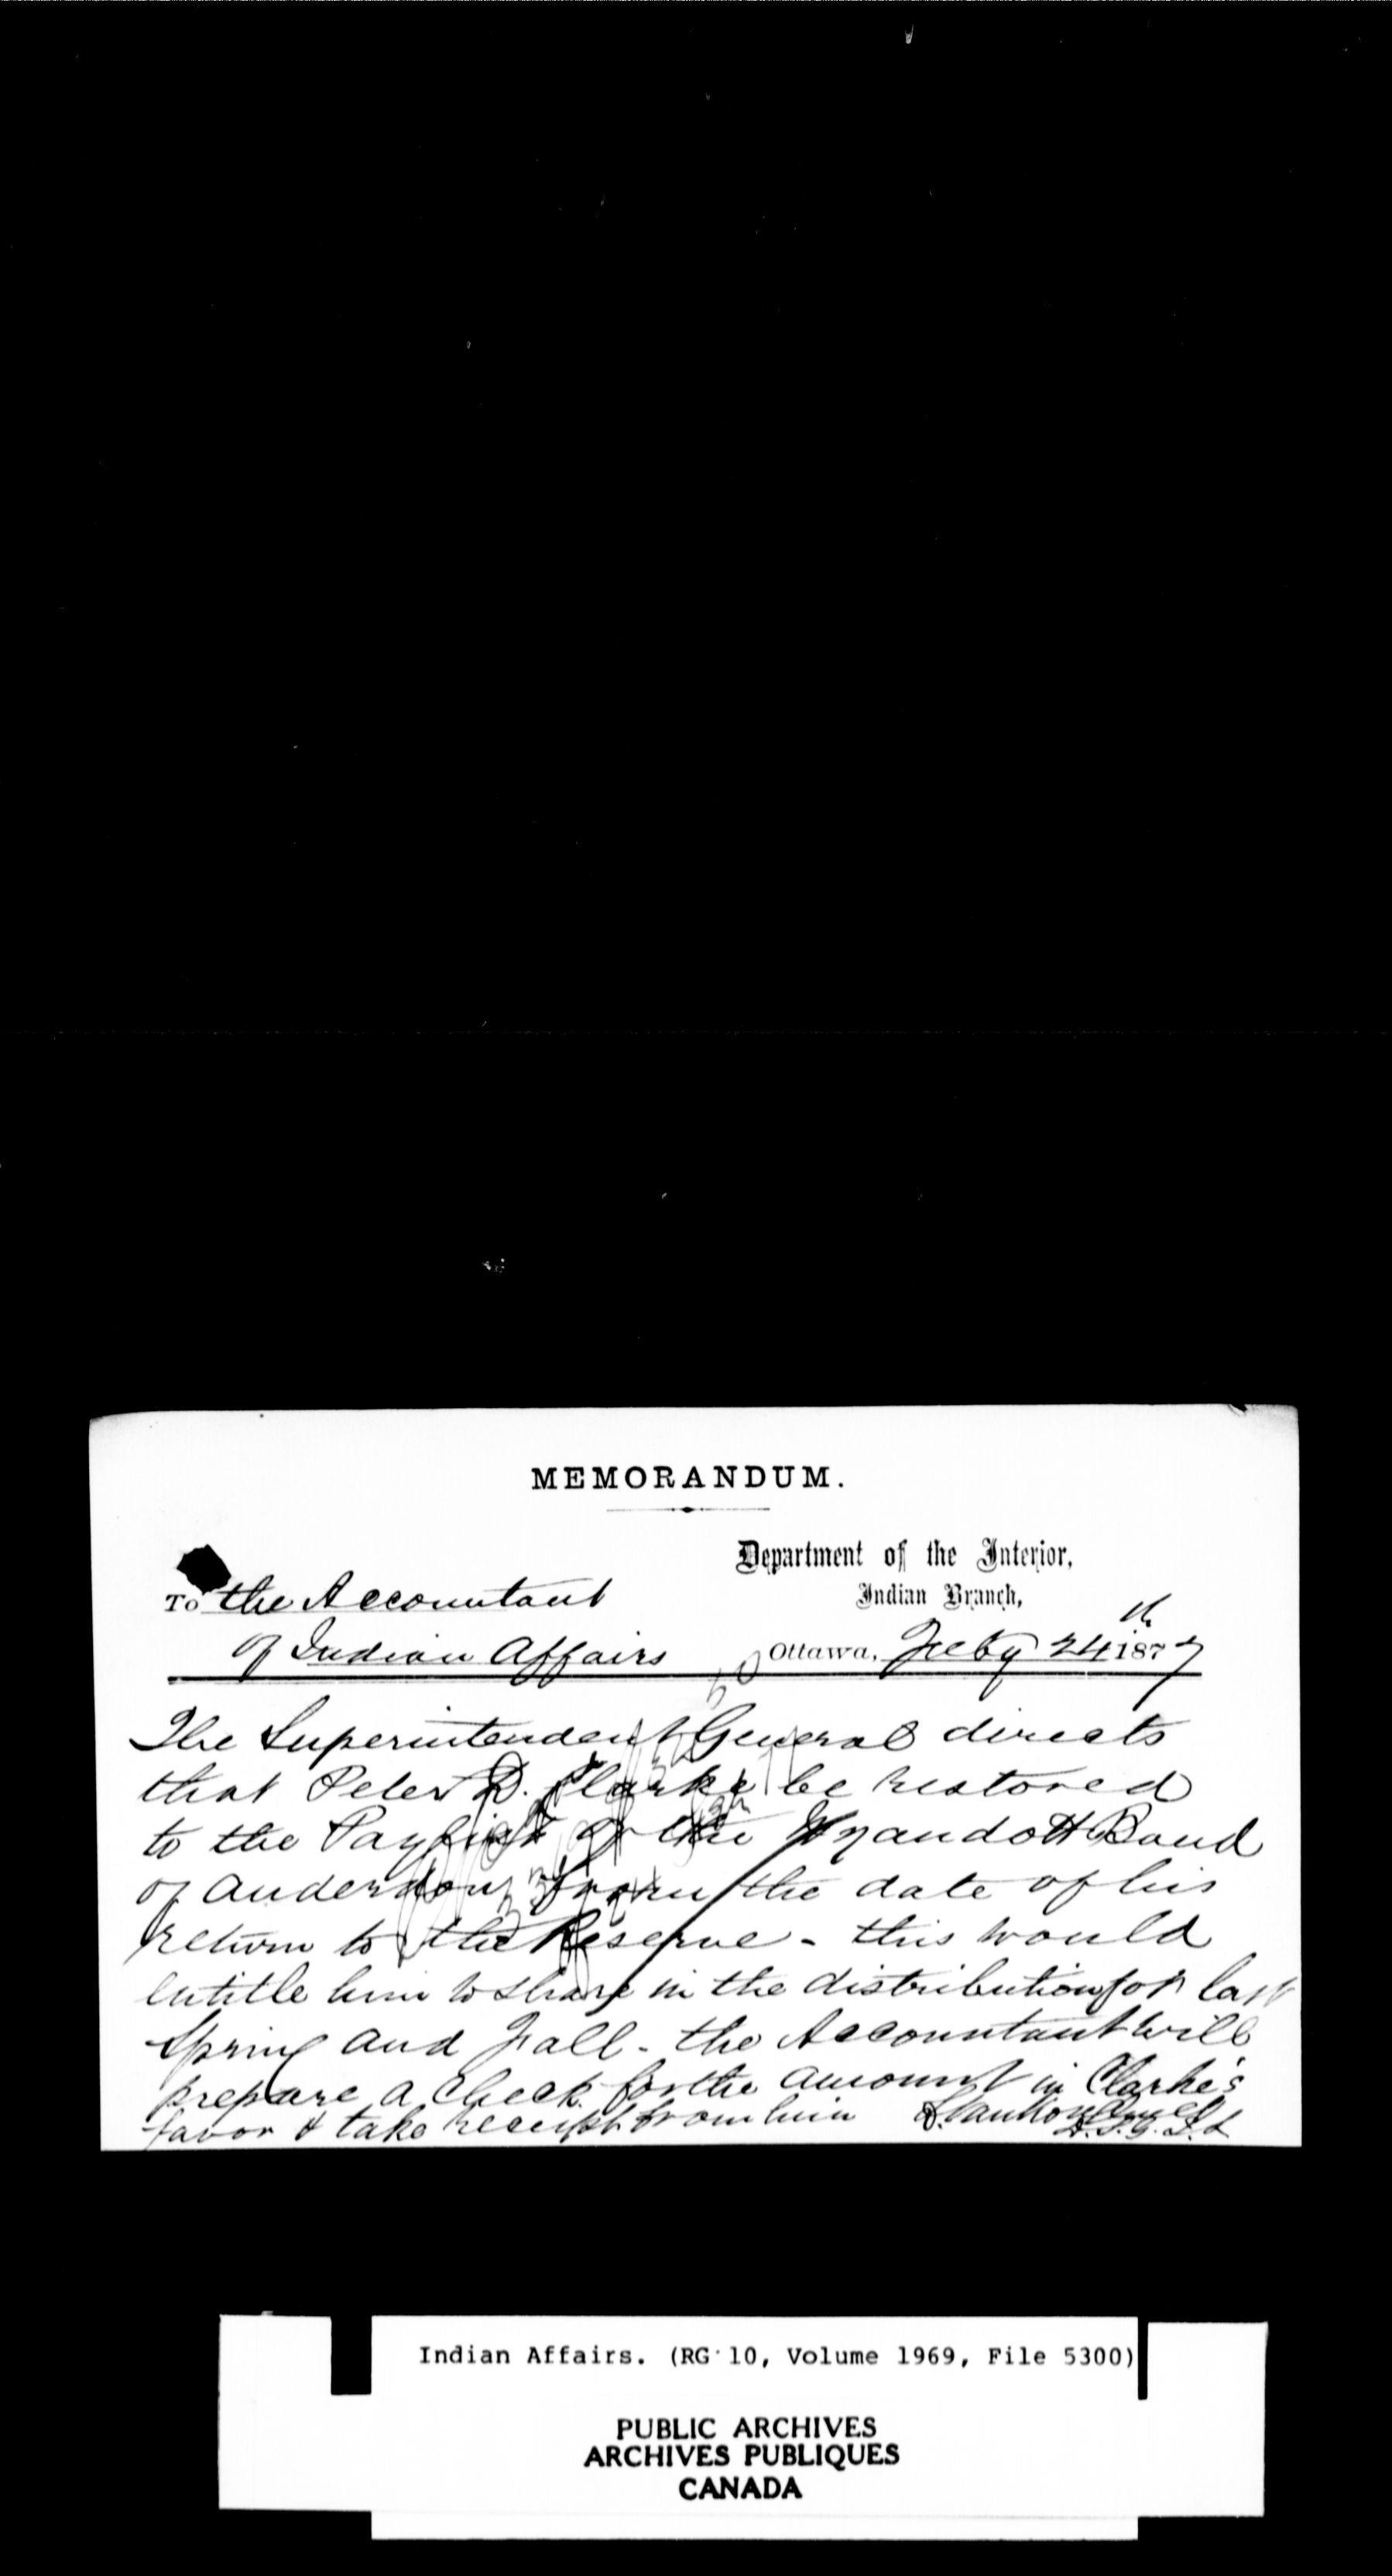 MEMORANDUM.
Department of the Interior,
Indian Branch,
To the Accountant
of Indian Affairs
Ottawa, Feby 24th 1877
The Superintendent General directs
that Peter D. Clarke be restored
to the Paylist of the Wyandott Band
of Anderdon, from the date of his
return to the Reserve - this would
entitle him to share in the distribution for last
Spring and Fall - the Accountant will
prepare a Check for the amount in Clarke's
favor & take receipt from him
Indian Affairs. (RG 10, Volume 1969, File 5300)
PUBLIC ARCHIVES
ARCHIVES PUBLIQUES
CANADA